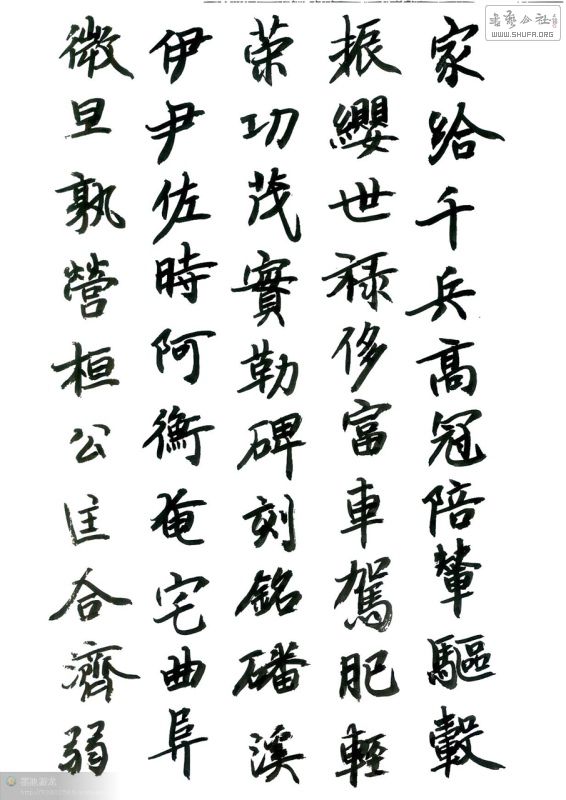 家給千兵高冠陪輦驅轂
振纓世禄侈富車駕肥輕
策功茂實勒碑刻銘磻溪
伊尹佐時阿衡奄宅曲阜
微旦孰營桓公匡合濟弱
WWW.SHUFA.ORG